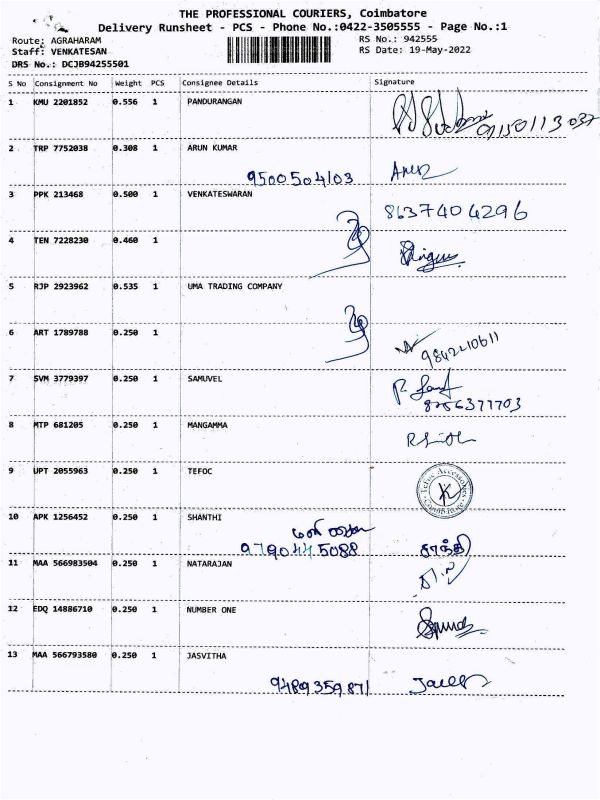 THE PROFESSIONAL COURIERS, Coimbatore
Delivery Runsheet - PCS - Phone No.:0422-3505555 - Page No.:1
Route: AGRAHARAM RS No.: 942555
Staff: VENKATESAN RS Date: 19-May-2022
DRS No.: DCJB94255501
S No Consignment No Weight PCS Consignee Details Signature
1 KMU 2201852 0.556 1 PANDURANGAN
2 TRP 7752038 0.308 1 ARUN KUMAR
9500504103
3 PPK 213468 0.500 1 VENKATESWARAN
8637404296
4 TEN 7228230 0.460 1
5 RJP 2923962 0.535 1 UMA TRADING COMPANY
6 ART 1789788 0.250 1
9842210611
7 SVM 3779397 0.250 1 SAMUVEL
8756377703
8 MTP 681205 0.250 1 MANGAMMA
9 UPT 2055963 0.250 1 TEFOC
Tefoc Accessories
Coimbatore
10 APK 1256452 0.250 1 SHANTHI
9790445088 சாந்தி
11 MAA 566983504 0.250 1 NATARAJAN
12 EDQ 14886710 0.250 1 NUMBER ONE
13 MAA 566793580 0.250 1 JASVITHA
9489359871